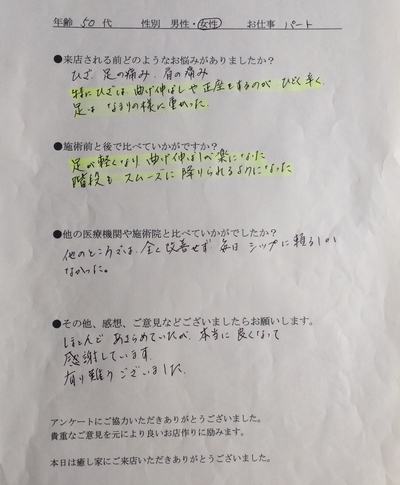 年齢 50 代 性別 男性・女性 お仕事 パート
●来店される前どのようなお悩みがありましたか?
ひざ、足の痛み、肩の痛み
特にひざは、曲げ伸ばしや正座をするのが ひどく辛く、
足は なまりの様に重かった。
●施術前と後で比べていかがですか?
足が軽くなり 曲げ伸ばしが楽になった
階段も スムーズに 降りられるようになった
●他の医療機関や施術院と比べていかがでしたか?
他のところでは、全く改善せず 毎日 シップに 頼るしか
なかった。
●その他、感想、ご意見などございましたらお願いします。
ほとんど あきらめていたが、本当に 良くなって
感謝しています。
有り難うございました。
アンケートにご協力いただきありがとうございました。
貴重なご意見を元により良いお店作りに励みます。
本日は癒し家にご来店いただきありがとうございました。